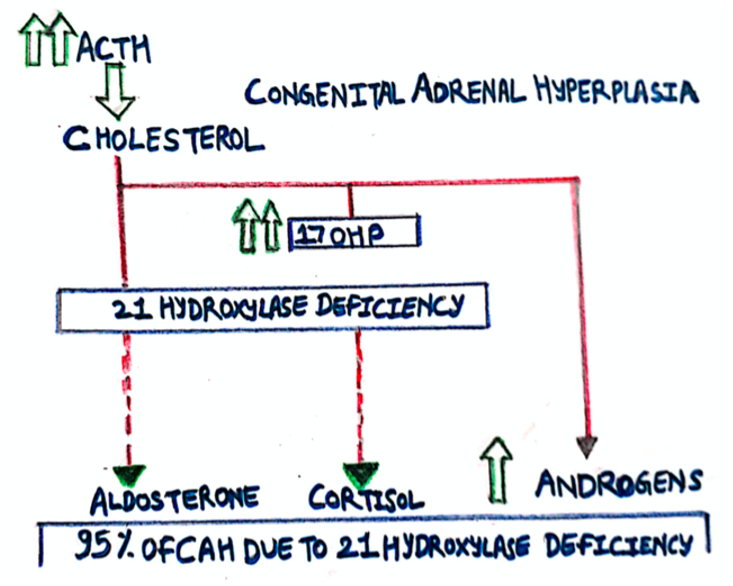 ACTH
CONGENITAL ADRENAL HYPERPLASIA
CHOLESTEROL
17OHP
21 HYDROXYLASE DEFICIENCY
ALDOSTERONE CORTISOL ANDROGENS
95% OF CAH DUE TO 21 HYDROXYLASE DEFICIENCY